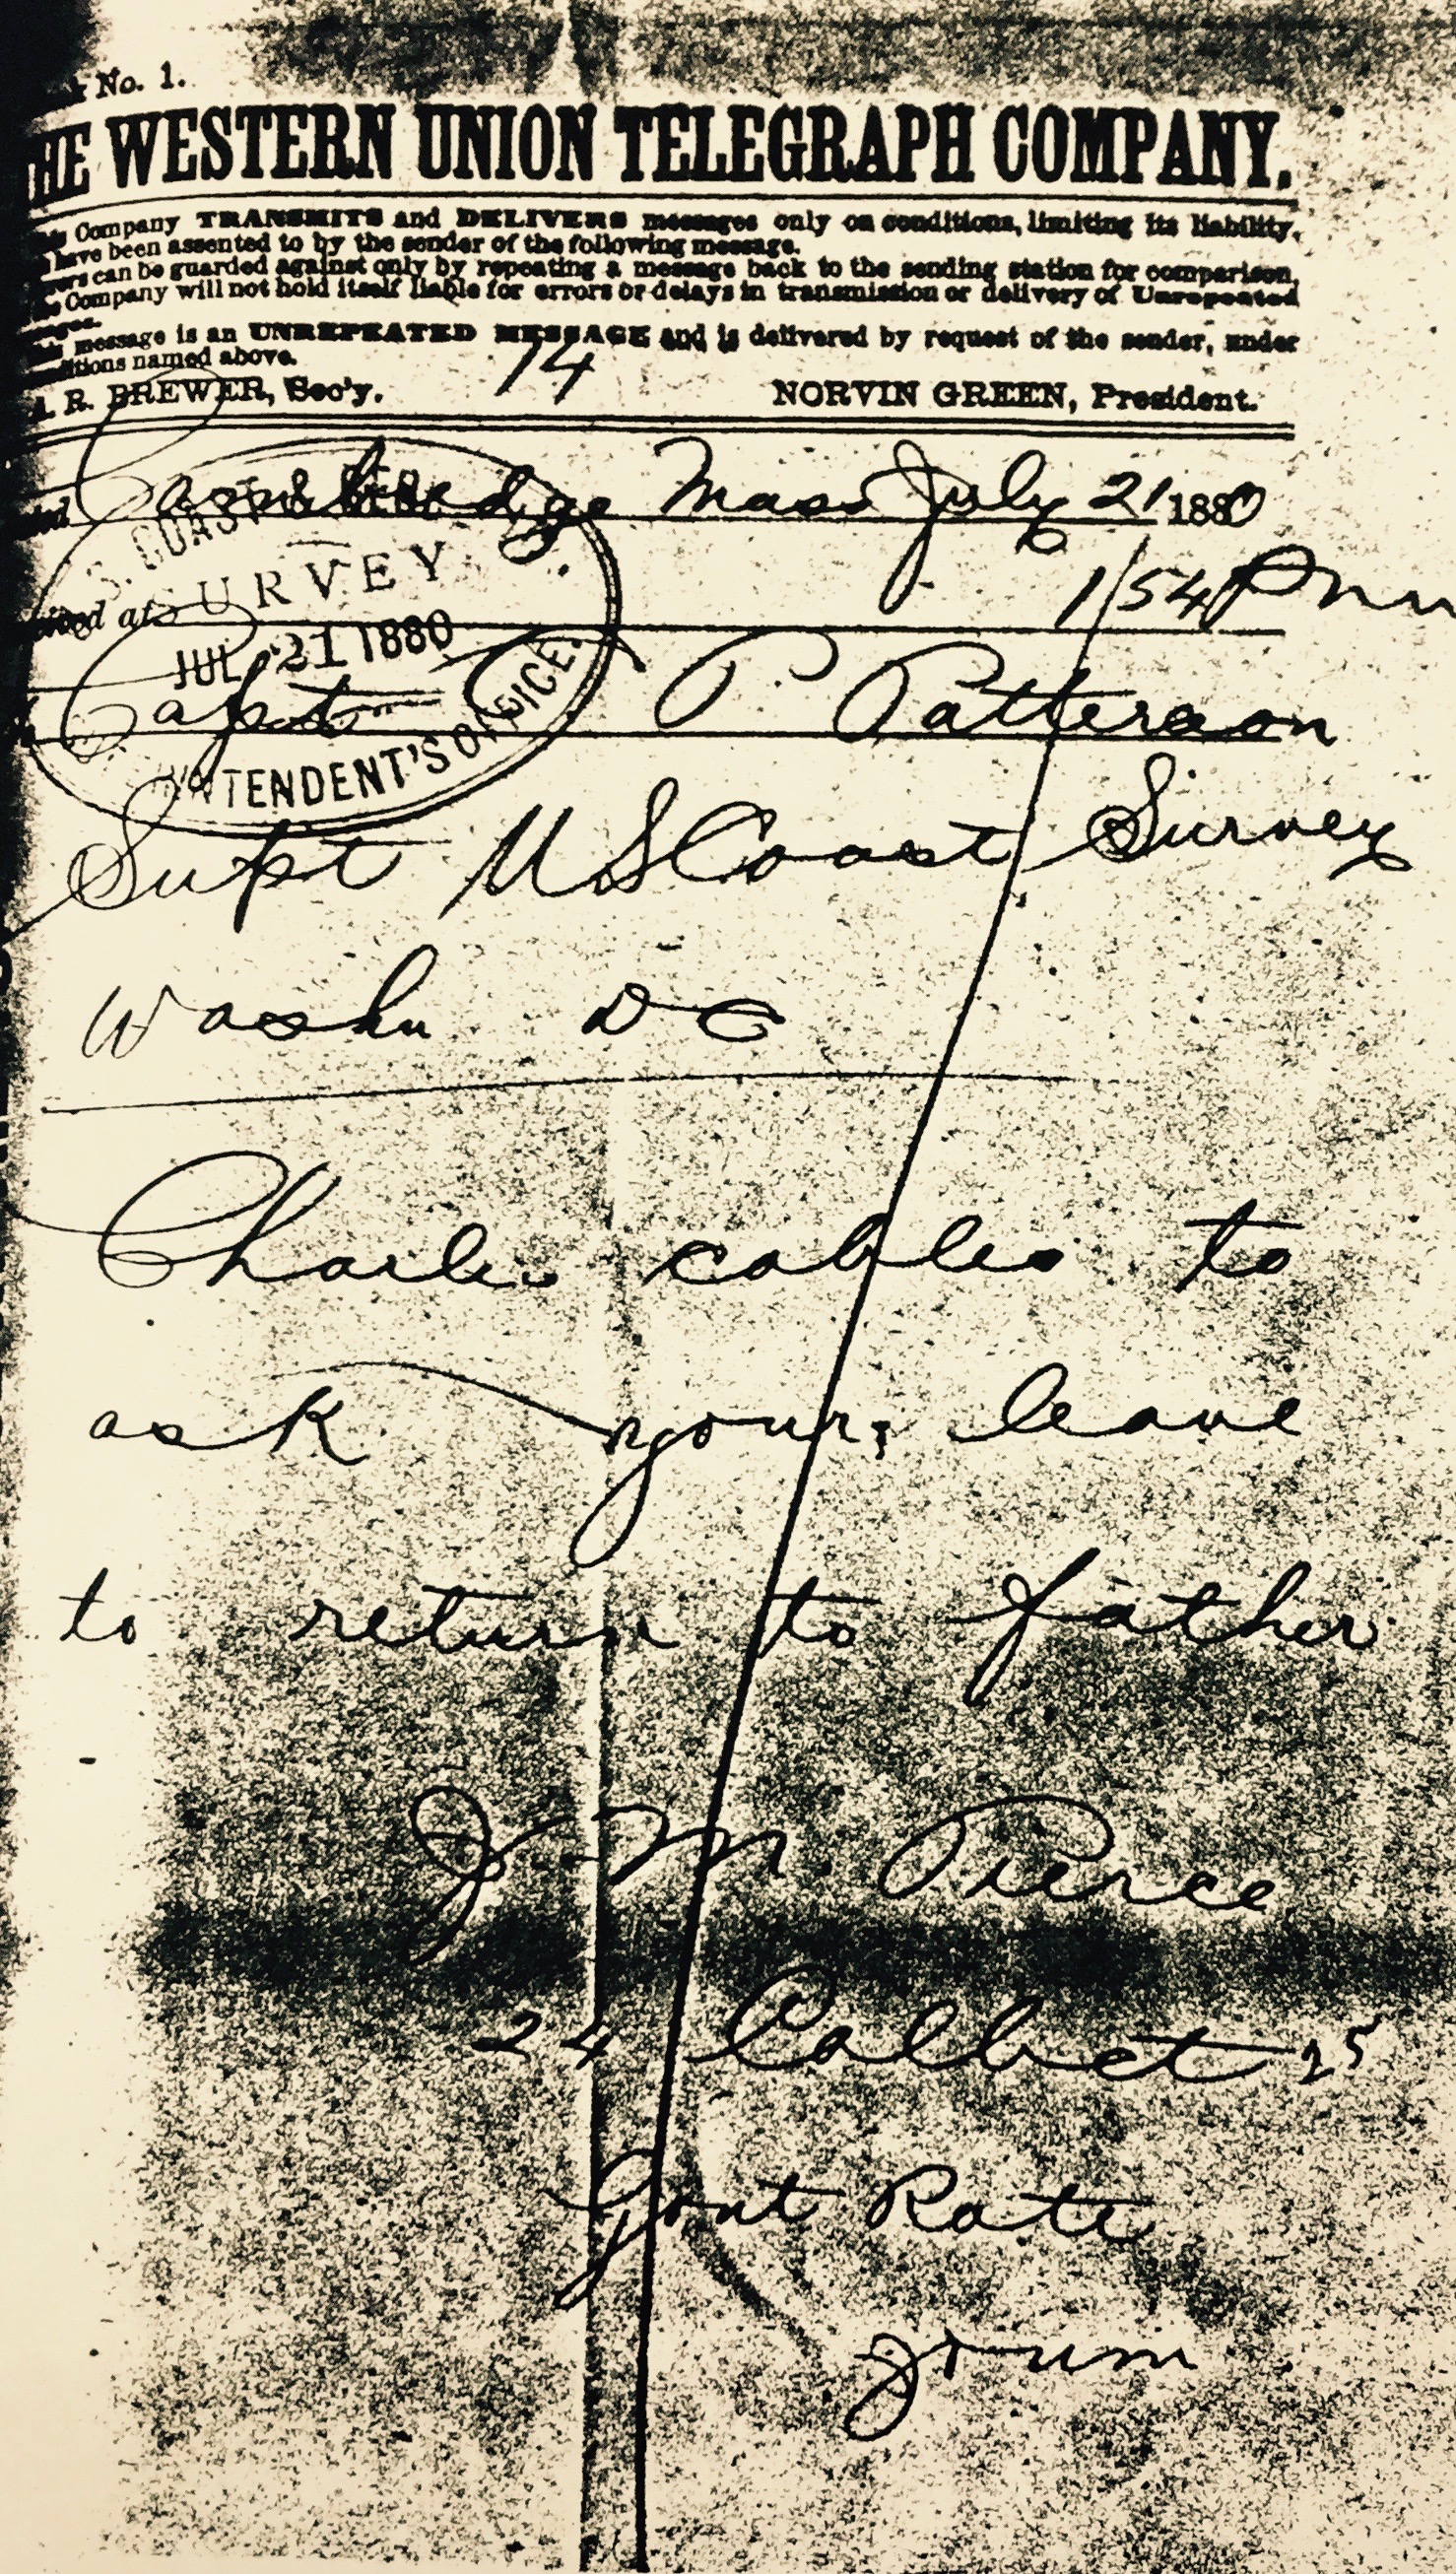 No. 1.
THE WESTERN UNION TELEGRAPH COMPANY.
This Company TRANSMITS and DELIVERS messages only on conditions, limiting its liability,
have been assented to by the sender of the following message.
can be guarded against only by repeating a message back to the sending station for comparison,
Company will not hold itself liable for errors or delays in transmission or delivery of Unrepeated
message is an UNREPEATED MESSAGE and is delivered by request of the sender, under
conditions named above.
74
A. R. BREWER, Sec'y. NORVIN GREEN, President.
Cambridge Mass July 21 1880
SURVEY
at 1/54 Pm
JUL 21 1880
Capt C P Patterson
TENDENT'S OFFICE.
Supt U S Coast Survey
Washn DC
Charles cables to
ask your leave
to return to father
J. M. Pierce
24 Collect 25
Govt Rate